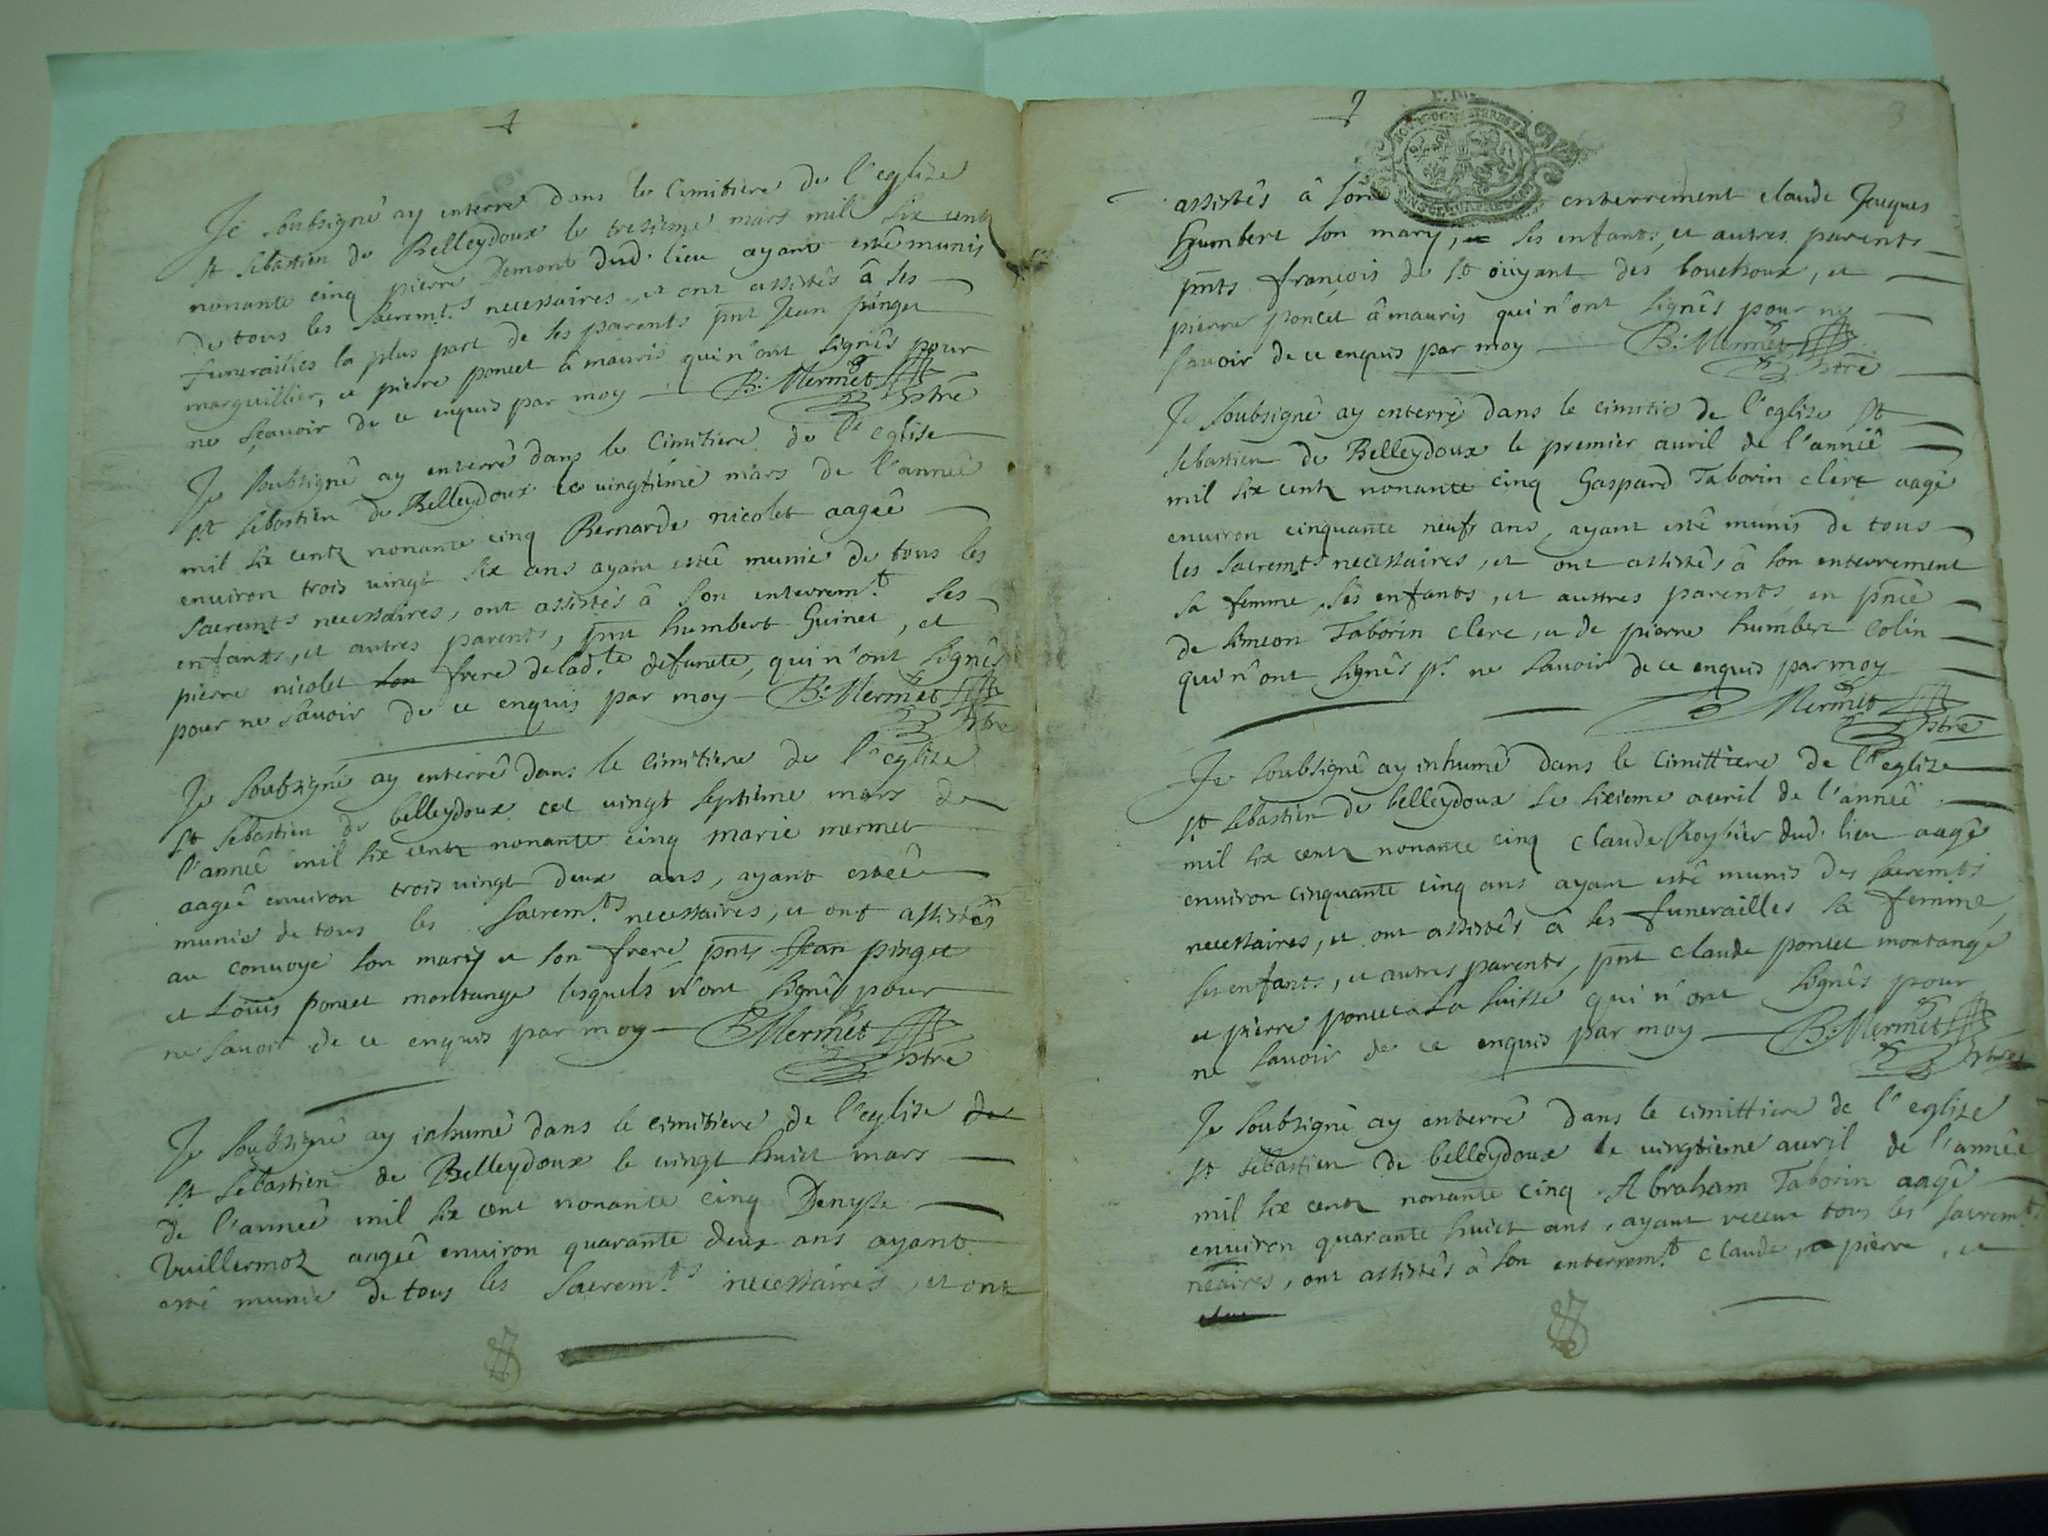 Je soubsignê ay enterré dans le Cimitiere de l'eglize
st sebastien de Belleydoux le tresieme mars mil six centz
nonante cinq pierre Demont dud. lieu ayant estê munis
de tous les sacrem.ts necessaires, et ont assistês â ses
funerailles la plus part de ses parents pnt Jean pinget
marguillier, et pierre poncet â mauris qui n'ont signês pour
ne sçavoir de ce enquis par moy B: Mermet
ptre
Je soubsignê ay enterrê dans le Cimitiere de l'eglise
st sebastien de Belleydoux le vingtiéme mars de l'anneê
mil six centz nonante cinq Bernarde nicolet aageê
environ trois vingt six ans ayant esteê munie de tous les
sacremts necessaires, ont assistés â son enterrem.t ses
enfants, et autres parents, pnt humbert Guinet, et
pierre nicolet son frere de lad.te defuncte, qui n'ont signês
pour ne sâvoir de ce enquis par moy B: Mermet
ptre
Je soubsigné ay enterrê dans le cimitiere de l'eglize
st sebastien de belleydoux cet vingt septiéme mars de
l'anneê mil six centz nonante cinq marie mermet
aageê environ trois vingt deux ans, ayant esteê
munie de tous les sacrem.ts necessaires, et ont assistês
au convoye son mary et son frere pnts Jean pinget
et Loüis poncet montange lesquels n'ont signês pour
ne savoir de ce enquis par moy B Mermet
ptre
Je soubsignê ay inhumê dans le cimitiere de l'eglise de
st sebastien de Belleydoux le vingt huict mars
de l'anneê mil six cent nonante cinq Denyse
Vuillermoz aageê environ quarante deux ans ayant
estê munie de tous les sacrem.ts necessaires, et ont
3
assistês â son enterrement claude Jacques
Humbert son mary, et ses enfants, et autres parents
pnts françois de st oüyant des bouchoux, et
pierre poncet â mauris qui n'ont signês pour ne
savoir de ce enquis par moy B: Mermet
ptre
Je soubsignê ay enterrê dans le cimitie de l'eglize st
sebastien de Belleydoux le premier avril de l'anniê
mil six centz nonante cinq Gaspard Taborin clerc aagê
environ cinquante neufs ans, ayant estê munis de tous
les sacremts necessaires, et ont assistês â son enterrement
sa femme, ses enfants, et austres parents en pnce
de simeon Taborin clerc, et de pierre humbert colin
qui n'ont signês pr. ne savoir de ce enquis par moy
Mermet
ptre
Je soubsignê ay inhumê dans le cimittiere de l'eglize
st sebastien de belleydoux le sixieme avril de l'anneê
mil six centz nonante cinq claude Roybier dud. lieu aagê
environ cinquante cinq ans ayant estê munis des sacremts
necessaires, et ont assistês â ses funerailles sa femme,
ses enfants, et autres parents, pnt claude poncet montange
et pierre poncet La suisse qui n'ont signês pour
ne savoir de ce enquis par moy B: Mermet
ptre
Je soubsignê ay enterrê dans le cimittiere de l'eglize
st sebastien de belleydoux le vingtieme avril de l'anneê
mil six centz nonante cinq Abraham Taborin aagê
environ quarante huict ans, ayant receu tous les sacrem.ts
neaires, ont assistês â son enterrem.t claude, et pierre, et